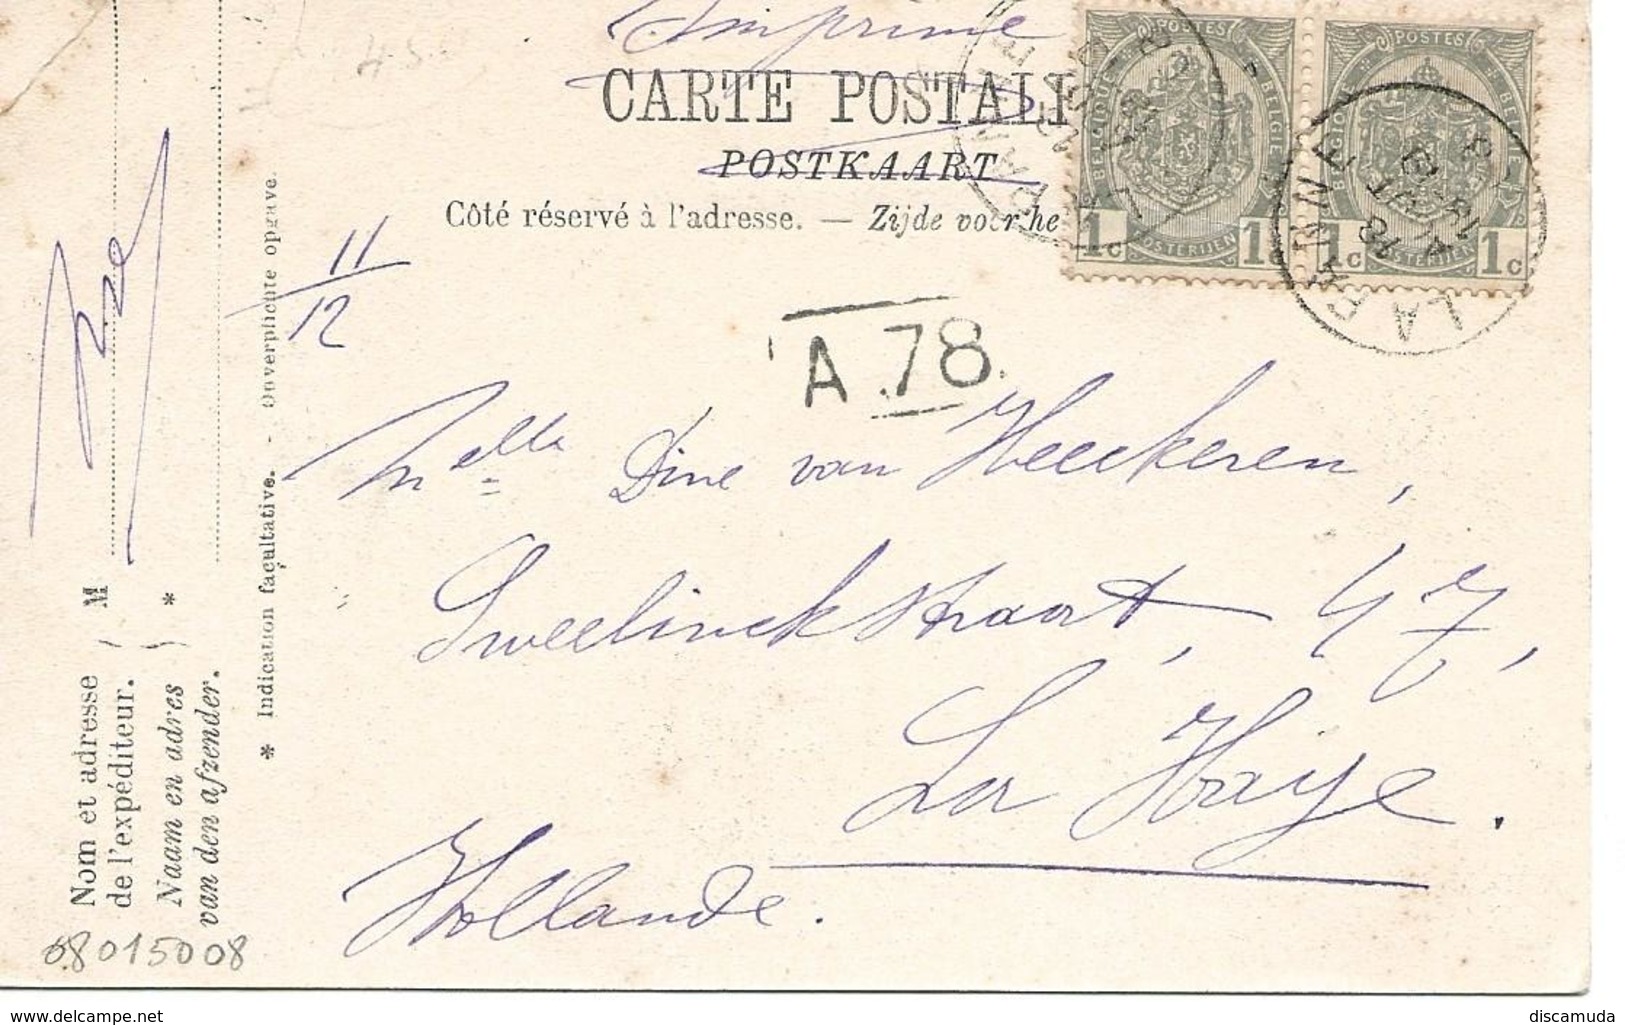 Imprimé
CARTE POSTAL
POSTKAART
Côté réservé à l'adresse. — Zijde voor he
POSTES
BELGIQUE
BELGIE
POSTERIJEN
1c
POSTES
BELGIQUE
BELGIE
POSTERIJEN
1c 1c
LA PANNE
18
AOUT
LA PANNE
11/12
A.78.
Melle Dine van Heeckeren,
Sweelinckstraat, 47,
La Haye.
Hollande.
Nom et adresse
de l'expéditeur.
M
Naam en adres
van den afzender.
*
* Indication facultative. - Onverplichte opgave
H.S.
08015008
www.delcampe.net
discamuda